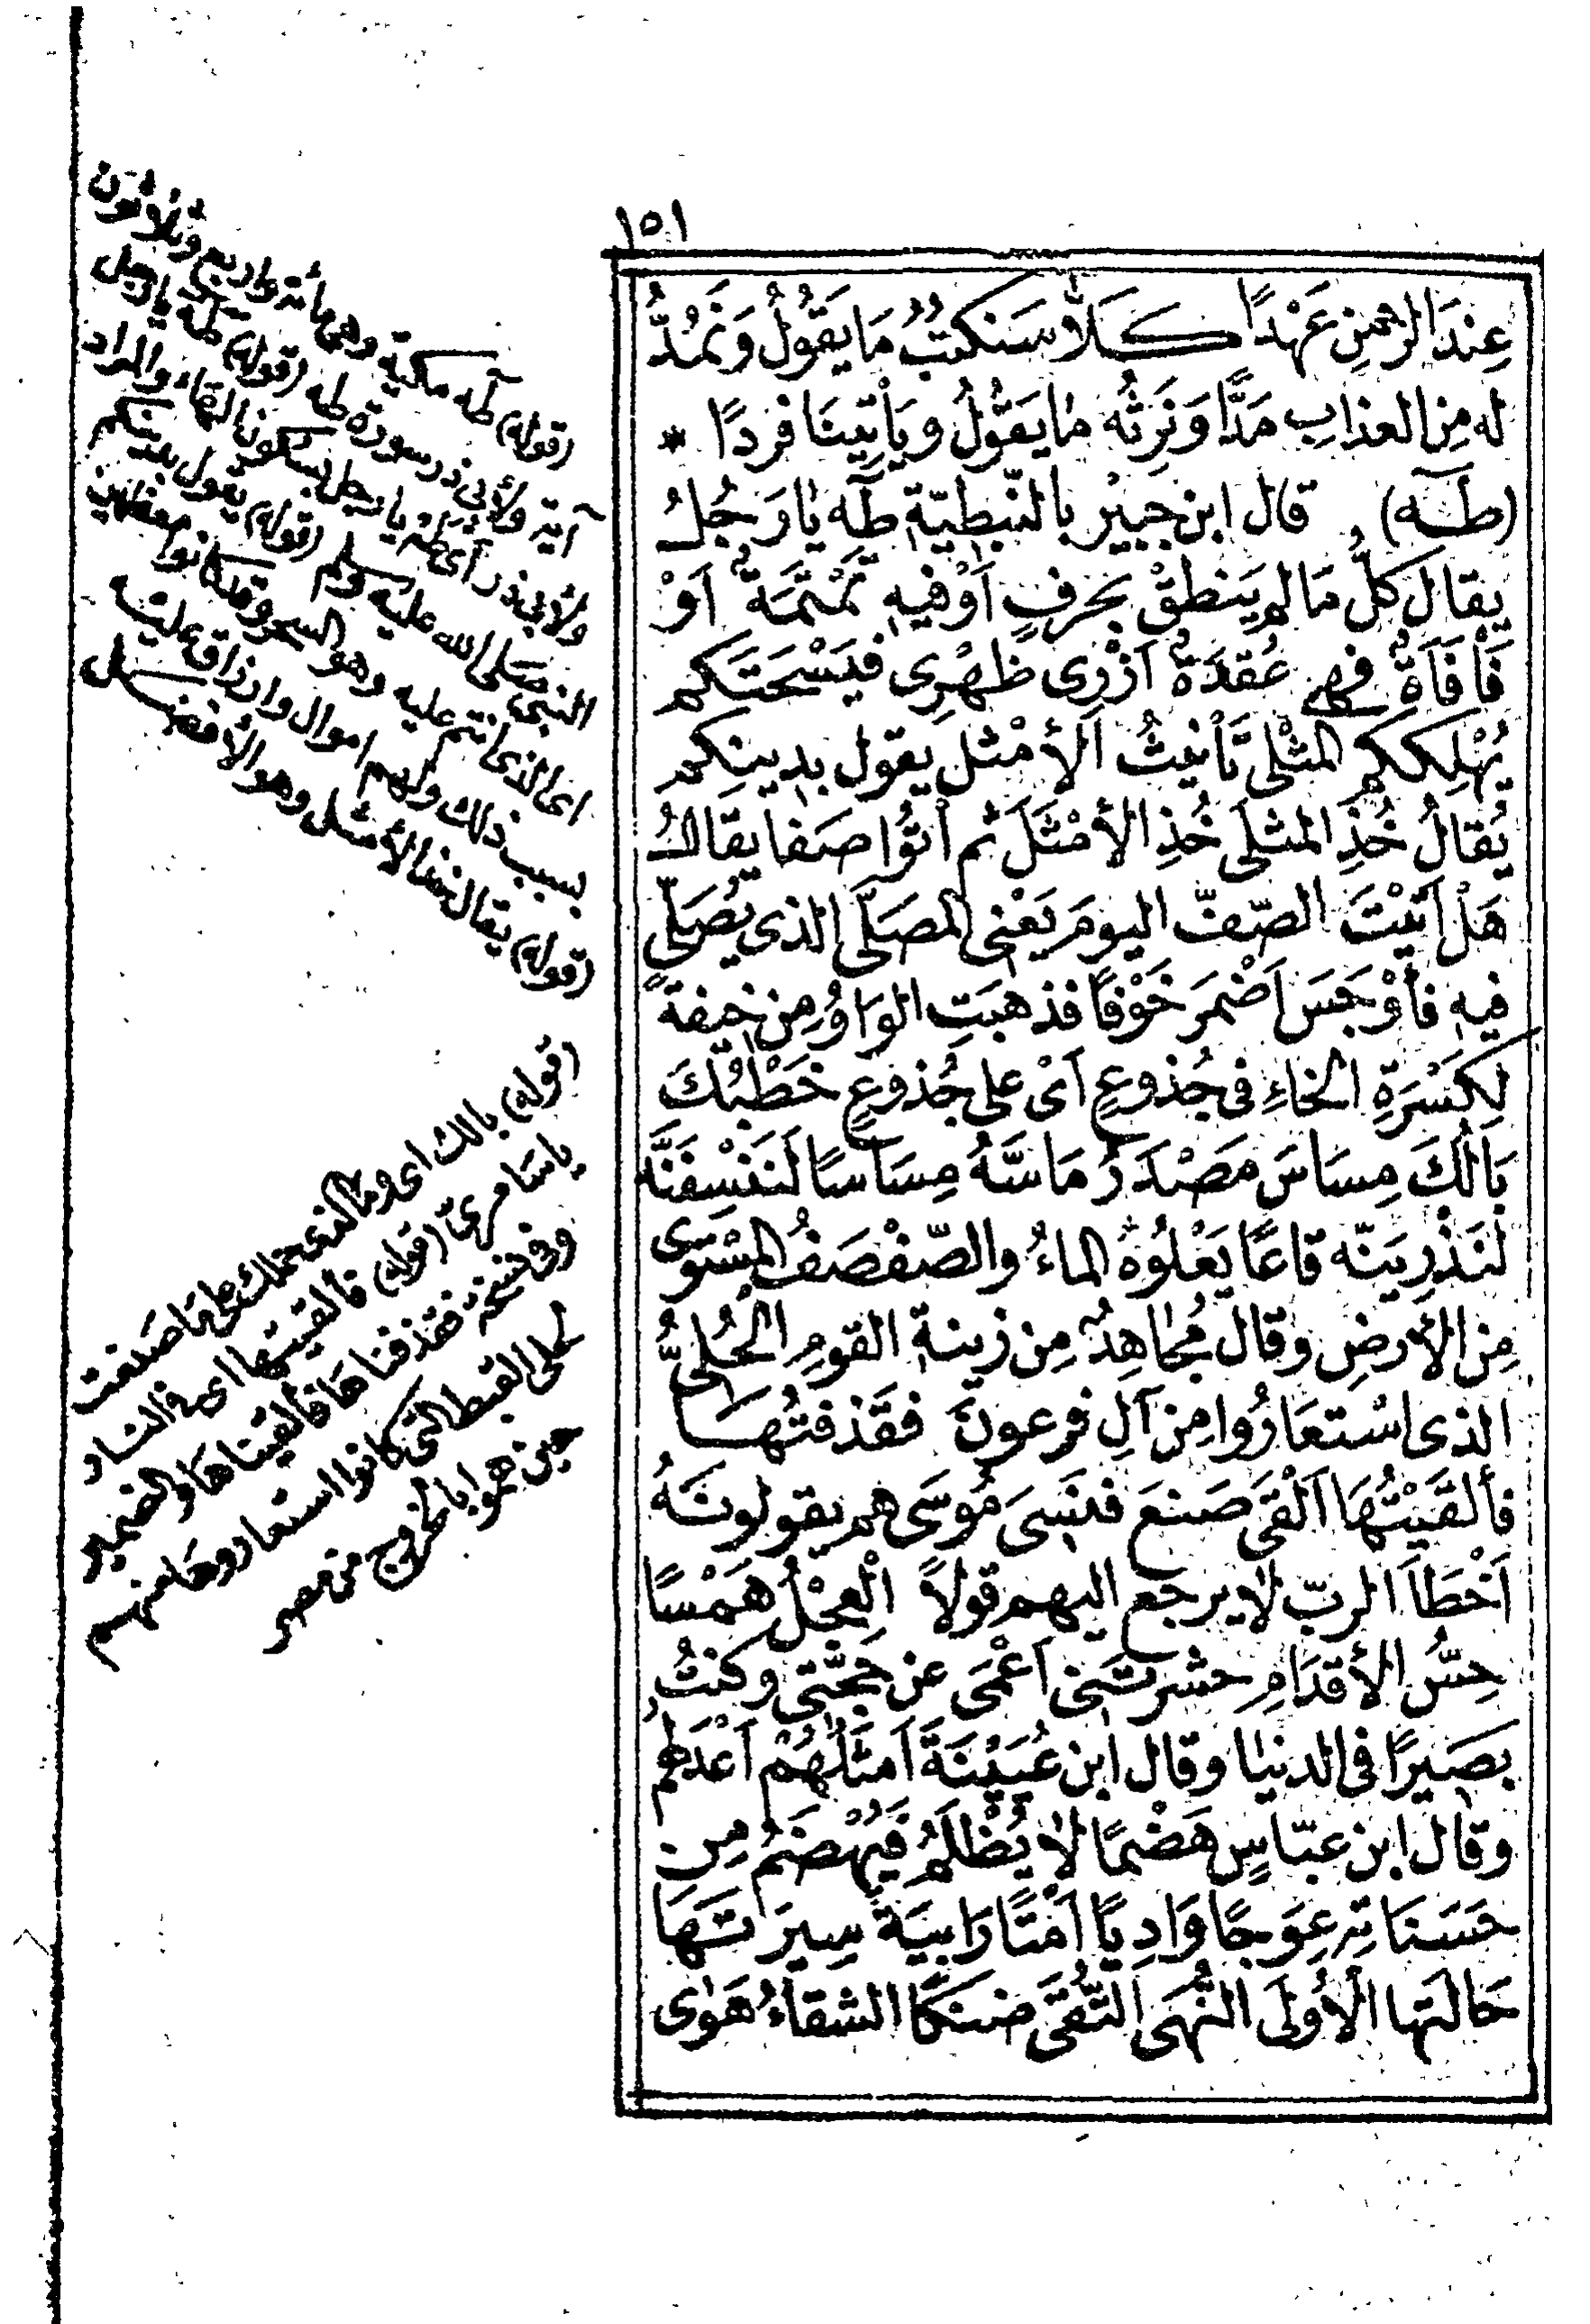 ١٥١
عِنْدَ الرحمنِ عَهْدًا كَلَّا سَنَكْتُبُ مَا يَقُولُ وَنَمُدُّ
له مِنَ العذابِ مَدًّا وَنَرِثُه مَا يَقُولُ ويَأْتِينَا فردًا *
(طـٓه) قال ابن جبيْر بالنّبطيّة طٓه يَا رَجُلُ
يقال كلُّ مَا لم يَنطقْ بحرفٍ اَوْ فيهِ تَمْتَمَةٌ اَوْ
فَأْفَأَةٌ فهى عُقدَةٌ اَزْرِى ظَهْرِى فيَسْحَتَكم
يُهْلِككم المُثْلَى تَأنيثُ الأمْثل يقول بدينكم
يُقالُ خُذِ المثلَى خُذِ الأمْثَلَ ثم ائْتُوا صَفا يقالُ
هَلْ اَتيْتَ الصّفّ اليومَ يَعْنى المصَلَّى الذى يُصَلَّى
فيه فأوْجَسَ اَضْمَرَ خَوْفًا فذهبَتِ الوَاوُ مِن خِيفَةً
لِكَسْرَةِ الخاءِ فى جُذوعِ اَىْ على جُذوعِ خَطْبُكَ
بَالُكَ مِسَاسَ مَصْدَرُ مَاسَّهُ مِسَاسًا لَنَنْسِفَنَّه
لَنَذْرِيَنّه قاعًا يَعْلُوهُ الماءُ والصّفْصَفُ المسْتَوِى
مِنَ الأرضِ وقال مُجاهِدٌ مِن زينةِ القومِ الحُلِىُّ
الذى اسْتَعَارُوا مِن آلِ فِرعونَ فقَذفتُهَا
فألقَيْتُهَا اَلْقَى صَنعَ فنَسِىَ مُوسَى هم يقولونَهُ
اَخْطَأَ الربّ لا يرجع اليهم قولاً الْعِجْلُ هَمْسًا
حِسُّ الأقدَامِ حشرتَنى اَعْمَى عن حُجَّتى وكنتُ
بَصيرًا فى الدنيا وقال ابن عُيَيْنَةَ اَمثَلُهُمْ اَعْدَلُهم
وقال ابن عبّاسٍ هَضْمًا لا يُظْلَمُ فيُهْضَمُ مِن
حَسَنَاتِهِ عِوَجًا وَادِيًا اَمْتًا رَابيَةً سِيرَتَهَا
حَالَتَها الأُولَى النُّهَى التُّقَى ضَنكًا الشقاءُ هَوٰى
(قوله) طٓه مكية وهى مائة واربع وثلاثون
آية ولأبى ذر سورة طه (قوله) طٓه يا رجل
ولأبى ذر اى طه يا رجل بسكون الهاء والمراد
النبى صلى الله عليه وسلم (قوله) يقول بدينكم
اى الذى انتم عليه وهو السحر وقد كانوا معظمين
بسبب ذلك ولهم اموال وارزاق عليه
(قوله) يقال خذ الأمثل وهو الأفضل
(قوله) بالك اى وما الذى حملك على ما صنعت
يا سامرىّ (قوله) فألقيتها اى فى النار
وفى نسخة فقذفناها فألقيناها والضمير
لحلى القبط التى كانوا استعاروها منهم
حين هموا بالخروج من مصر